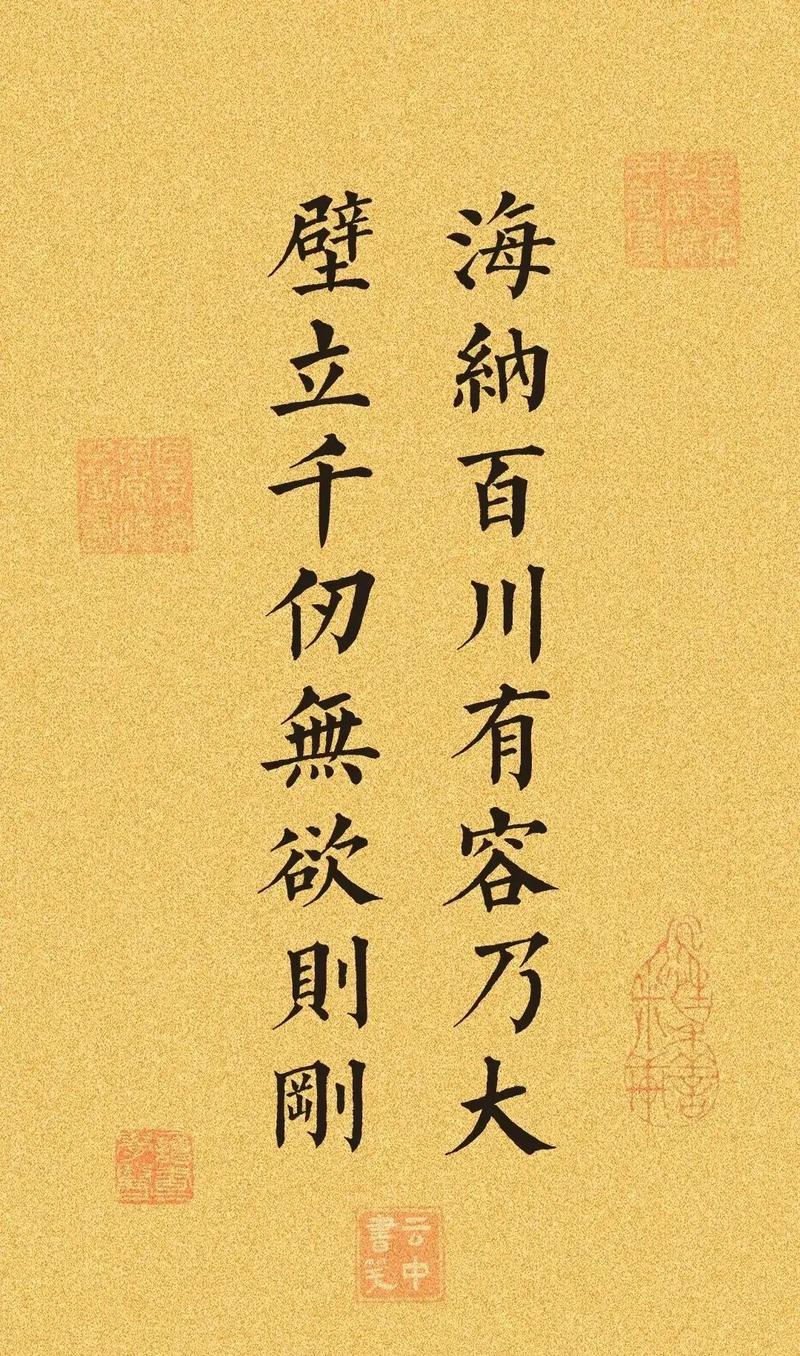 海納百川有容乃大
壁立千仞無欲則剛
云中書笑